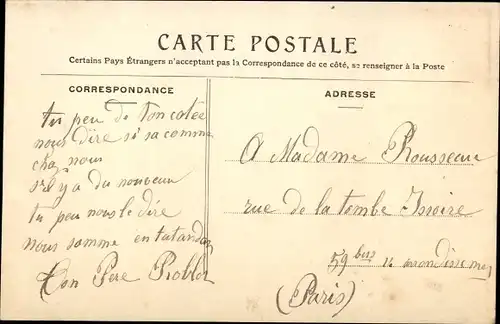 CARTE POSTALE
Certains Pays Étrangers n'acceptant pas la Correspondance de ce côté, se renseigner à la Poste
CORRESPONDANCE
tu peu de ton coteé
nous dire si sa comme
chez nous
s'il y a du nouveau
tu peu nous le dire
nous somme en tatandan
ton Pere Roblot
ADRESSE
A Madame Rousseau
rue de la tombe Issoire
59 bis 14 arrondissemen
(Paris)